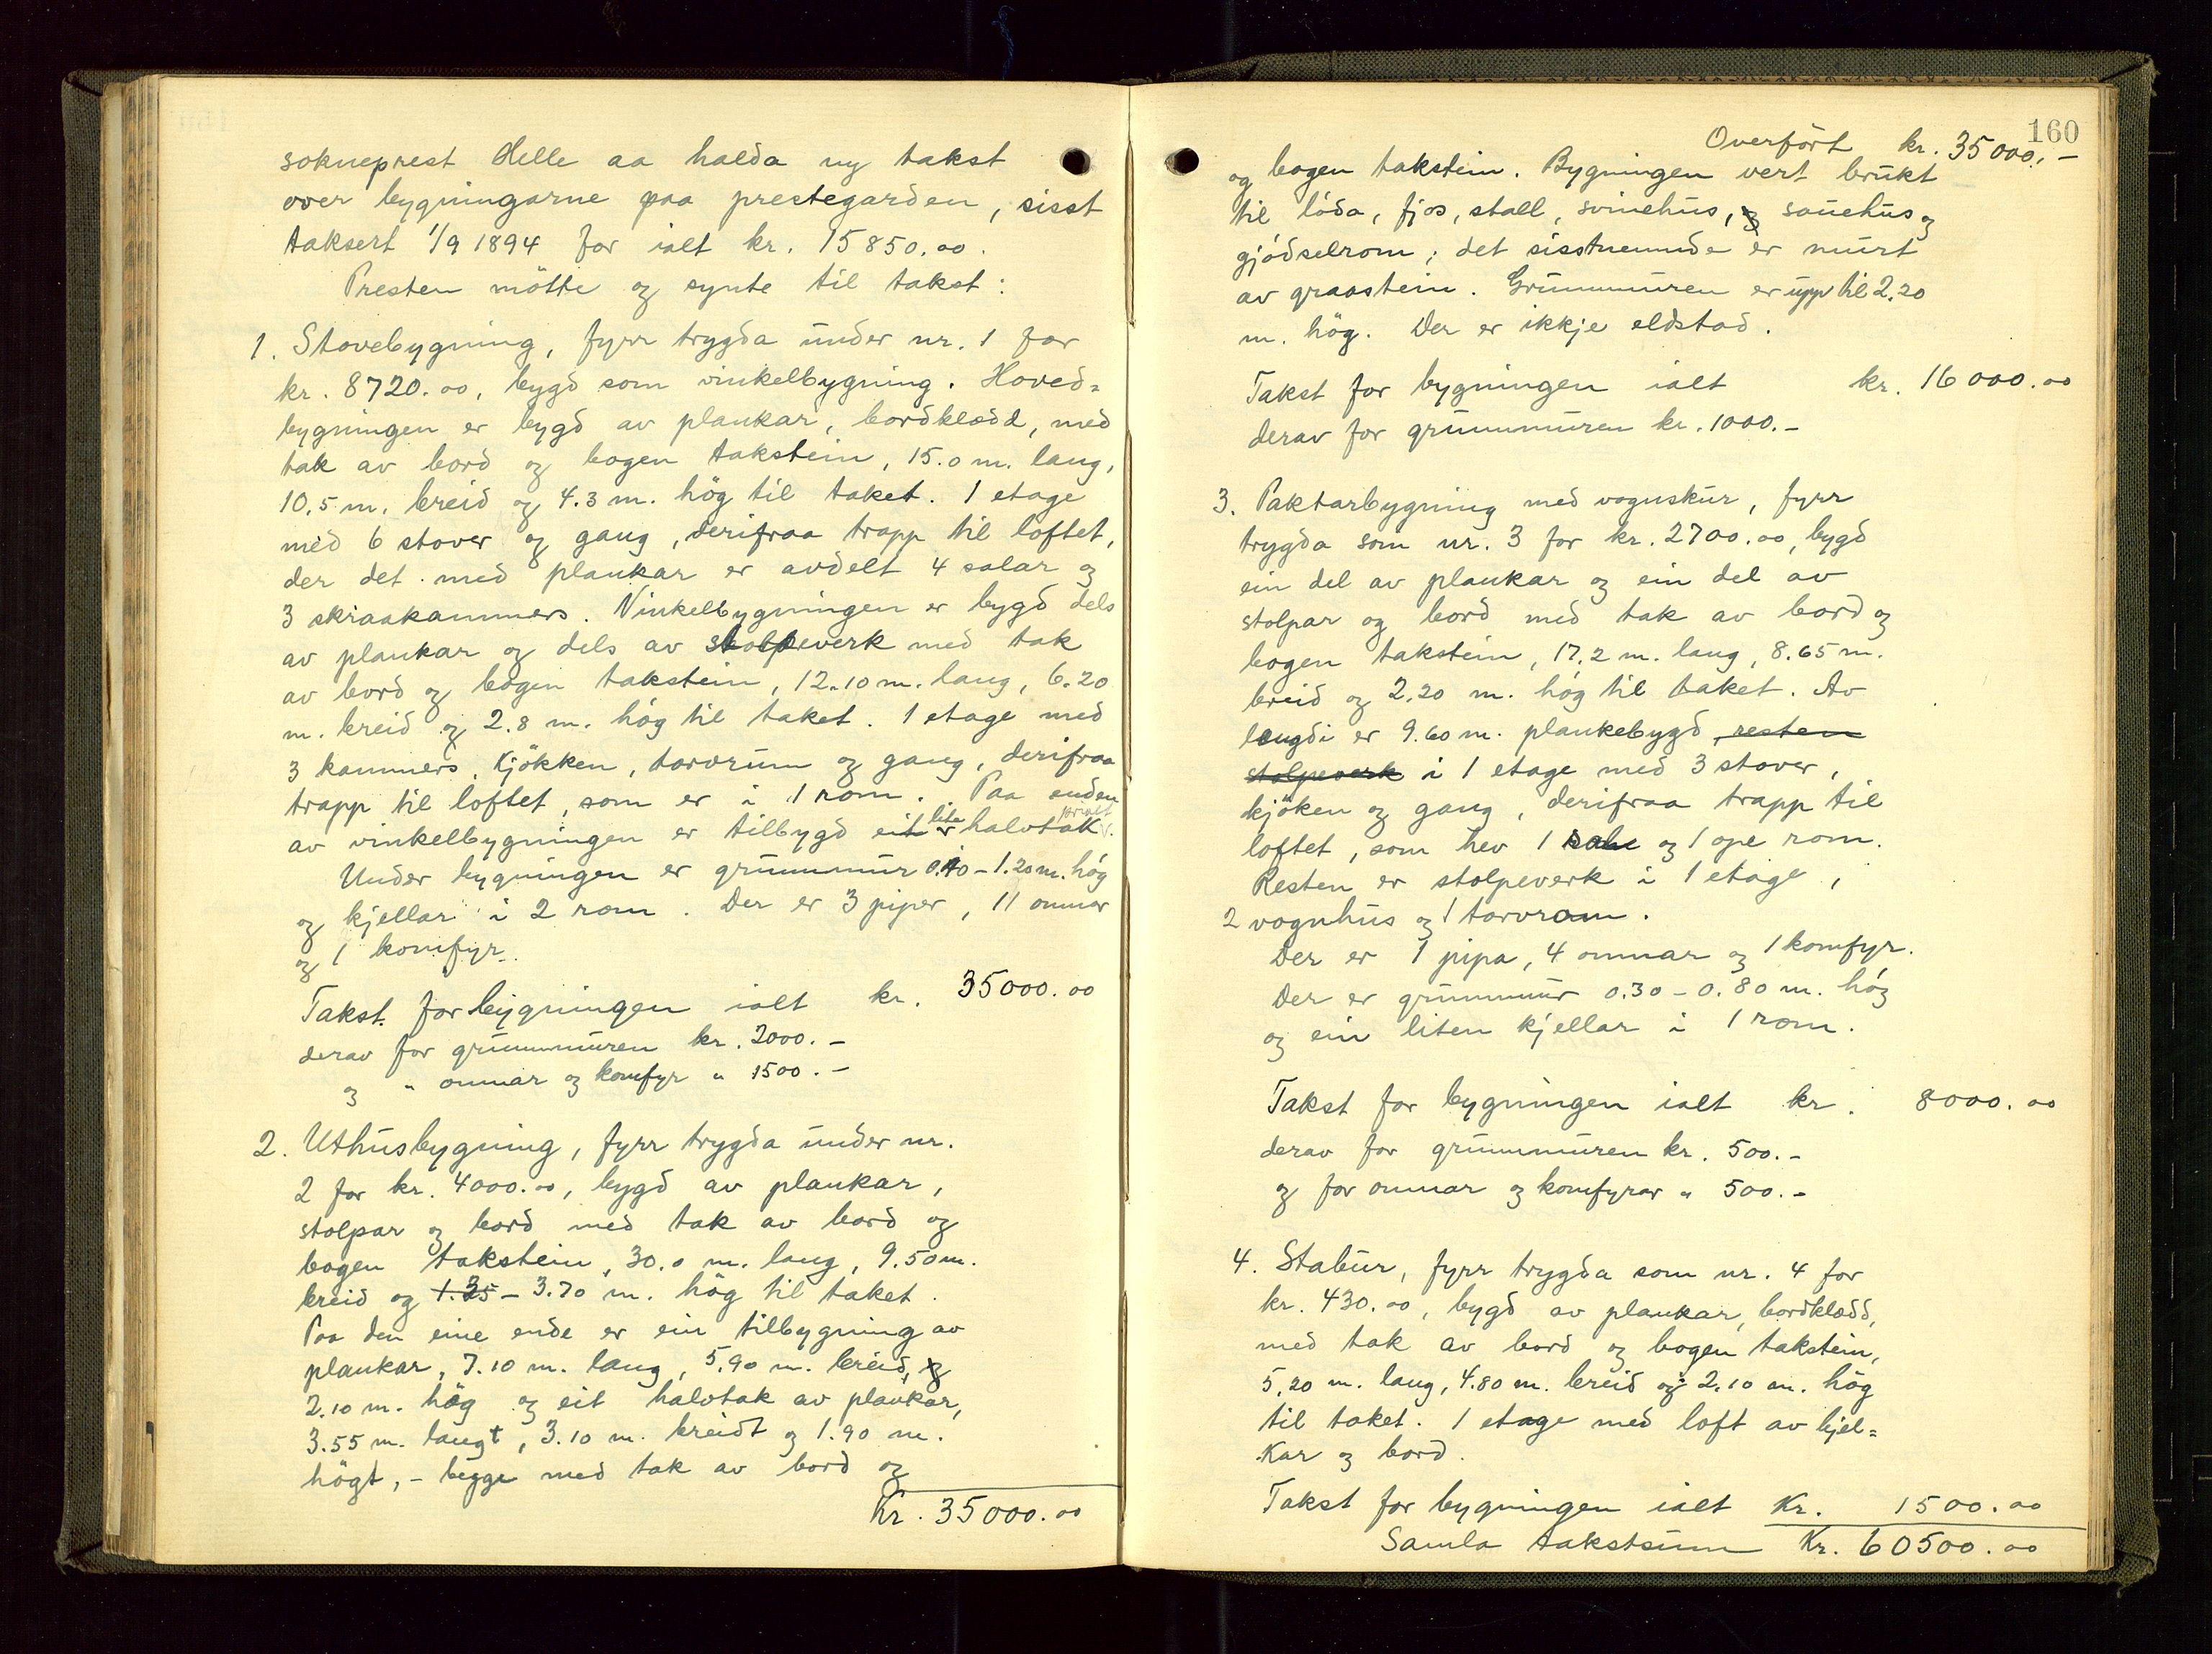 sokneprest Helle aa halda ny takst
over bygningarne paa prestegarden, sisst
taksert 1/9 1894 for ialt kr. 15850.00.
Presten mötte og synte til takst:
1. Stovebygning, fyrr trygda under nr. 1 for
kr. 8720.00, bygd som vinkelbygning. Hoved=
bygningen er bygd av plankar, bordklædd, med
tak av bord og bogen takstein, 15.0 m. lang,
10.5 m. breid og 4.3 m. hög til taket. 1 etage
med 6 stover og gang, derifraa trapp til loftet,
der det med plankar er avdelt 4 salar og
3 skraakammers. Vinkelbygningen er bygd dels
av plankar og dels av stolpeverk med tak
av bord og bogen takstein, 12.10 m. lang, 6.20
m. breid og 2.8 m. hög til taket. 1 etage med
3 kammers, kjökken, torvrum og gang, derifraa
trapp til loftet, som er i 1 rom. Paa enden
av vinkelbygningen er tilbygd eit lite halvtak
Under bygningen er grunnmur 0.40 - 1.20 m. hög
og kjellar i 2 rom. Der er 3 piper, 11 omnar
og 1 komfyr.
Takst for bygningen ialt kr. 35000.00
derav for grunnmuren kr. 2000.-
og " omnar og komfyr " 1500.-
2. Uthusbygning, fyrr trygda under nr.
2 for kr. 4000.00, bygd av plankar,
stolpar og bord med tak av bord og
bogen takstein, 30.0 m. lang, 9.50 m.
breid og 1.35 - 3.70 m. hög til taket.
Paa den eine ende er ein tilbygning av
plankar, 7.10 m. lang, 5.90 m. breid, og
2.10 m. hög og eit halvtak av plankar,
3.55 m. langt, 3.10 m. breidt og 1.90 m.
högt, - begge med tak av bord og
Kr. 35000.00
160
Overfört kr. 35000.-
og bogen takstein. Bygningen vert brukt
til löda, fjos, stall, svinehus, og sauehus og
gjödselrom; det sisstnemnde er murt
av graastein. Grunnmuren er upp til 2.20
m. hög. Der er ikkje eldstad.
Takst for bygningen ialt kr. 16000.00
derav for grunnmuren kr. 1000.-
3. Paktarbygning med vognskur, fyrr
trygda som nr. 3 for kr. 2700.00, bygd
ein del av plankar og ein del av
stolpar og bord med tak av bord og
bogen takstein, 17.2 m. lang, 8.65 m.
breid og 2.20 m. hög til taket. Av
lengdi er 9.60 m. plankebygd, resten
stolpeverk i 1 etage med 3 stover,
kjöken og gang, derifraa trapp til
loftet, som hev 1 sale og 1 ope rom.
Resten er stolpeverk i 1 etage,
2 vognhus og 1 torvrom.
Der er 1 pipa, 4 omnar og 1 komfyr.
Der er grunnmur 0.30 - 0.80 m. hög
og ein liten kjellar i 1 rom.
Takst for bygningen ialt kr. 8000.00
derav for grunnmuren kr. 500.-
og for omnar og komfyrar " 500.-
4. Stabur, fyrr trygda som nr. 4 for
kr. 430.00, bygd av plankar, bordklædd,
med tak av bord og bogen takstein,
5.20 m. lang, 4.80 m. breid og 2.10 m. hög
til taket. 1 etage med loft av bjel=
kar og bord.
Takst for bygningen ialt Kr. 1500.00
Samla takstsum Kr. 60500.00